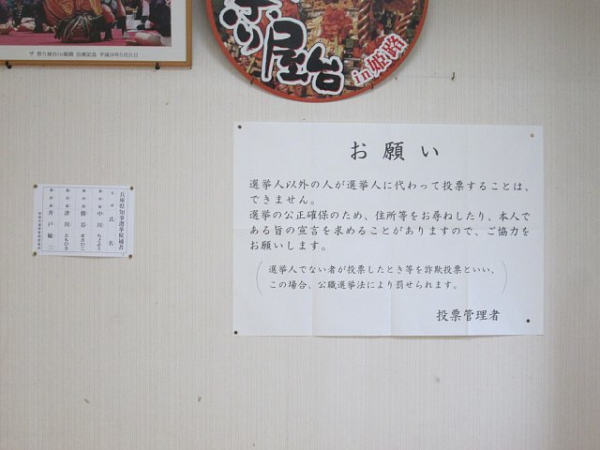 祭り屋台
in姫路
お願い
選挙人以外の人が選挙人に代わって投票することは、
できません。
選挙の公正確保のため、住所等をお尋ねしたり、本人で
ある旨の宣言を求めることがありますので、ご協力を
お願いします。
選挙人でない者が投票したとき等を詐欺投票といい、
この場合、公職選挙法により罰せられます。
投票管理者
兵庫県知事選挙候補者
氏名